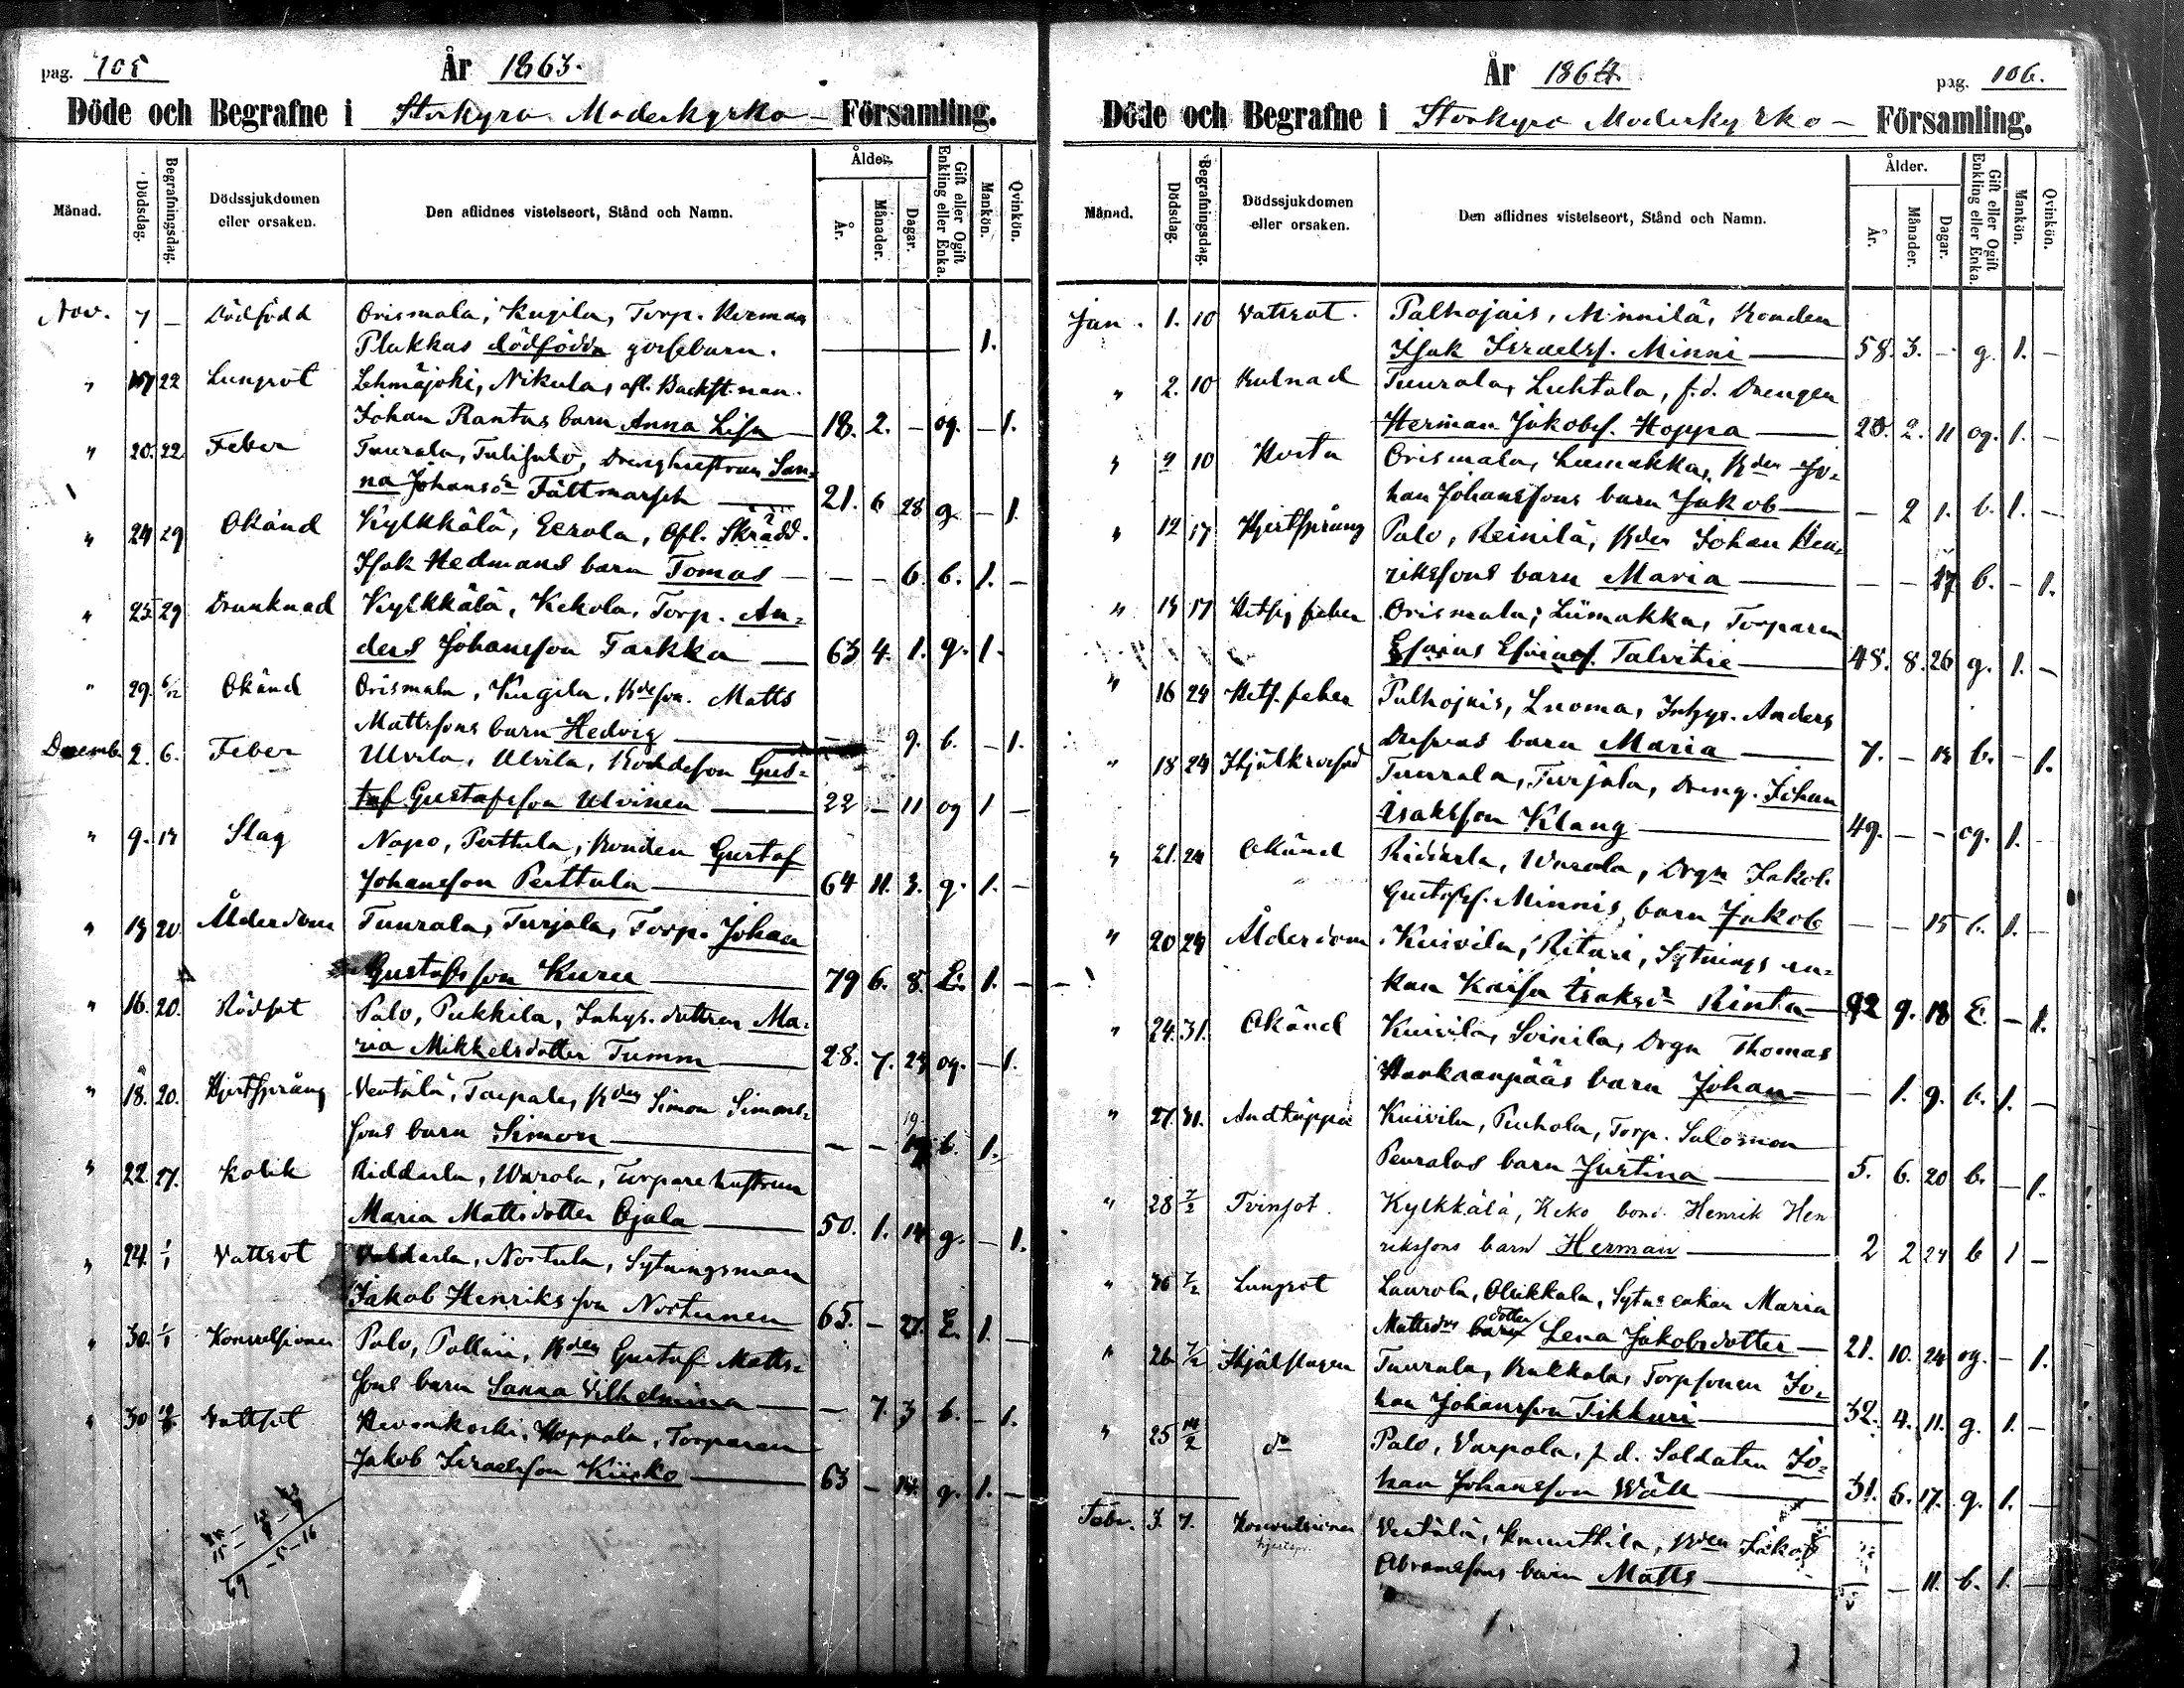 pag. 105 År 1863.
Döde och Begrafne i Storkyro Moderkyrko- Församling.
Månad. Dödsdag. Begrafningsdag. Dödssjukdomen eller orsaken. Den aflidnes vistelseort, Stånd och Namn. Ålder. År. Månader. Dagar. Gift eller Ogift Enkling eller Enka. Mankön. Qvinkön.
Nov. 7 — Dödfödd Orismala, Kugila, Torp. Herman
Plukkas dödfödda gossebarn. — 1.
" 17 22 Lungsot Lehmäjoki, Nikula, afl. Backst.man.
Johan Rantas barn Anna Lisa — 18. 2. — og. — 1.
" 20. 22. Feber Tuurala, Dränghustrun San-
na Johansdr Fältmarsch — 21. 6 28 g — 1.
" 24 29 Okänd Kylkkälä, Eerola, Afl. Skrädd.
Isak Hedmans barn Tomas — — — 6. b. 1. —
" 25. 29 Drunknad Kylkkälä, Kekola, Torp. An-
ders Johansson Tarkka — 63 4. 1. g. 1.
" 29. 6/12 Okänd Orismala, Kugila, Bdeson. Matts
Mattssons barn Hedvig — 9. b. — 1.
Decemb. 2. 6. Feber Ulvila, Ulvila, Bondeson Gus-
taf Gustafsson Ulvinen — 22 — 11 og 1 —
" 9. 13 Slag Napo, Perttula, Bonden Gustaf
Johansson Perttula — 64 11. 3. g. 1. —
" 13 20. Ålderdom Tuurala, Turjala, Torp. Johan
Gustafsson Kuru — 79 6. 8. E. 1. —
" 16. 20. Rödsot Palo, Pukkila, Inhys. dottren Ma-
ria Mikkelsdotter Tumm — 28. 7. 23 og. — 1.
" 18. 20. Hjertsprång Ventälä, Taipale, Bden Simon Simons-
sons barn Simon — — — 19 b. 1.
" 22. 27. Kolik Riddarla, Warola, Torpare hustrun
Maria Mattsdotter Ojala — 50. 1. 14 g. — 1.
" 24. 1/1 Vattsot Valdarla, Nostula, Sytningsman
Jakob Henriksson Nostunen 65. — 27. E. 1. —
" 30. 1/1 Konvulsioner Palo, Pollari, Bden Gustaf Matts-
sons barn Sanna Vilhelmina — — 7. 3 b. — 1.
" 30 Vattsot Hevonkoski, Hoppala, Torparen
Jakob Israelsson Kiisko — 63 — 14. g. 1. —
69 -5-16
pag. 106. År 1864.
Döde och Begrafne i Storkyro Moderkyrko- Församling.
Månad. Dödsdag. Begrafningsdag. Dödssjukdomen eller orsaken. Den aflidnes vistelseort, Stånd och Namn. Ålder. År. Månader. Dagar. Gift eller Ogift Enkling eller Enka. Mankön. Qvinkön.
Jan. 1. 10 Vattsot. Palhojais, Minnilä, Bonden
Isak Israelss. Minni — 58. 3. — g. 1. —
" 2. 10 Tuurala, Luhtala, f.d. Drengen
Herman Jakobss. Hoppa — 28. 2. 11 og. 1. —
" 9 10 Hosta Orismala, Liimakka, Bden Jo-
han Johanssons barn Jakob — — 2 1. b. 1. —
" 12 17 Hjertsprång Palo, Reinilä, Bden Johan Hen-
rikssons barn Maria — — — 27 b. — 1.
" 13 17 Hetsig feber Orismala, Liimakka, Torparen
Esaias Esaiass. Talvitie — 48. 8. 26 g. 1. —
" 16 24 Hets. feber Palhojais, Luoma, Inhys. Anders
barn Maria — 7. — 13 b. — 1.
" 18 24 Tuurala, Turjala, Dreng. Johan
Isaksson Klang — 49. — — og. 1. —
" 21. 24 Okänd Riddarla, Warola, Drgn Jakob
Gustafss. Minnis barn Jakob — — 15 b. 1. —
" 20 24 Ålderdom Kuivila, Ritari, Sytnings en-
kan Kaisa Isaksdr Rinta — 92 9. 18 E. — 1.
" 24. 31. Okänd Kuivila, Soinila, Drgn Thomas
Hankaanpääs barn Johan — — 1. 9. b. 1. —
" 27. 31. Andtäppa Kuivila, Puhola, Torp. Salomon
Peuralas barn Justina — 5. 6. 20 b. — 1.
" 28 7/2 Tvinsot. Kylkkälä, Keko bond. Henrik Hen
rikssons barn Herman — 2 2 24 b 1 —
" 7/2 Lungsot Laurola, Olikkala, Sytn. enkan Maria
Mattsdrs dotter Lena Jakobsdotter — 21. 10. 24 og. — 1.
" 26 7/2 Ihjälslagen Tuurala, Kukkola, Torpsonen Jo-
han Johansson Tikkuri — 32. 4. 11. g. 1. —
" 25 14/2 do Palo, Varpola, f.d. Soldaten Jo-
han Johansson Wäll — 31. 6. 17. g. 1. —
Febr. 3. 7. Konvulsioner Ventälä, Knuuttila, Bden Jakob
hjertspr. Abramssons barn Matts — — 11. b. 1. —